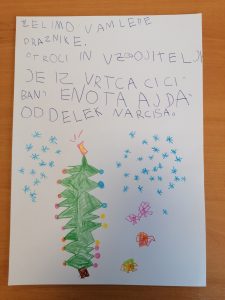 ŽELIMO VAM LEPE
PRAZNIKE.
OTROCI IN VZGOJITELJI
JE IZ VRTCA CICI
BAN ENOTA AJDA
ODDELEK NARCISA.